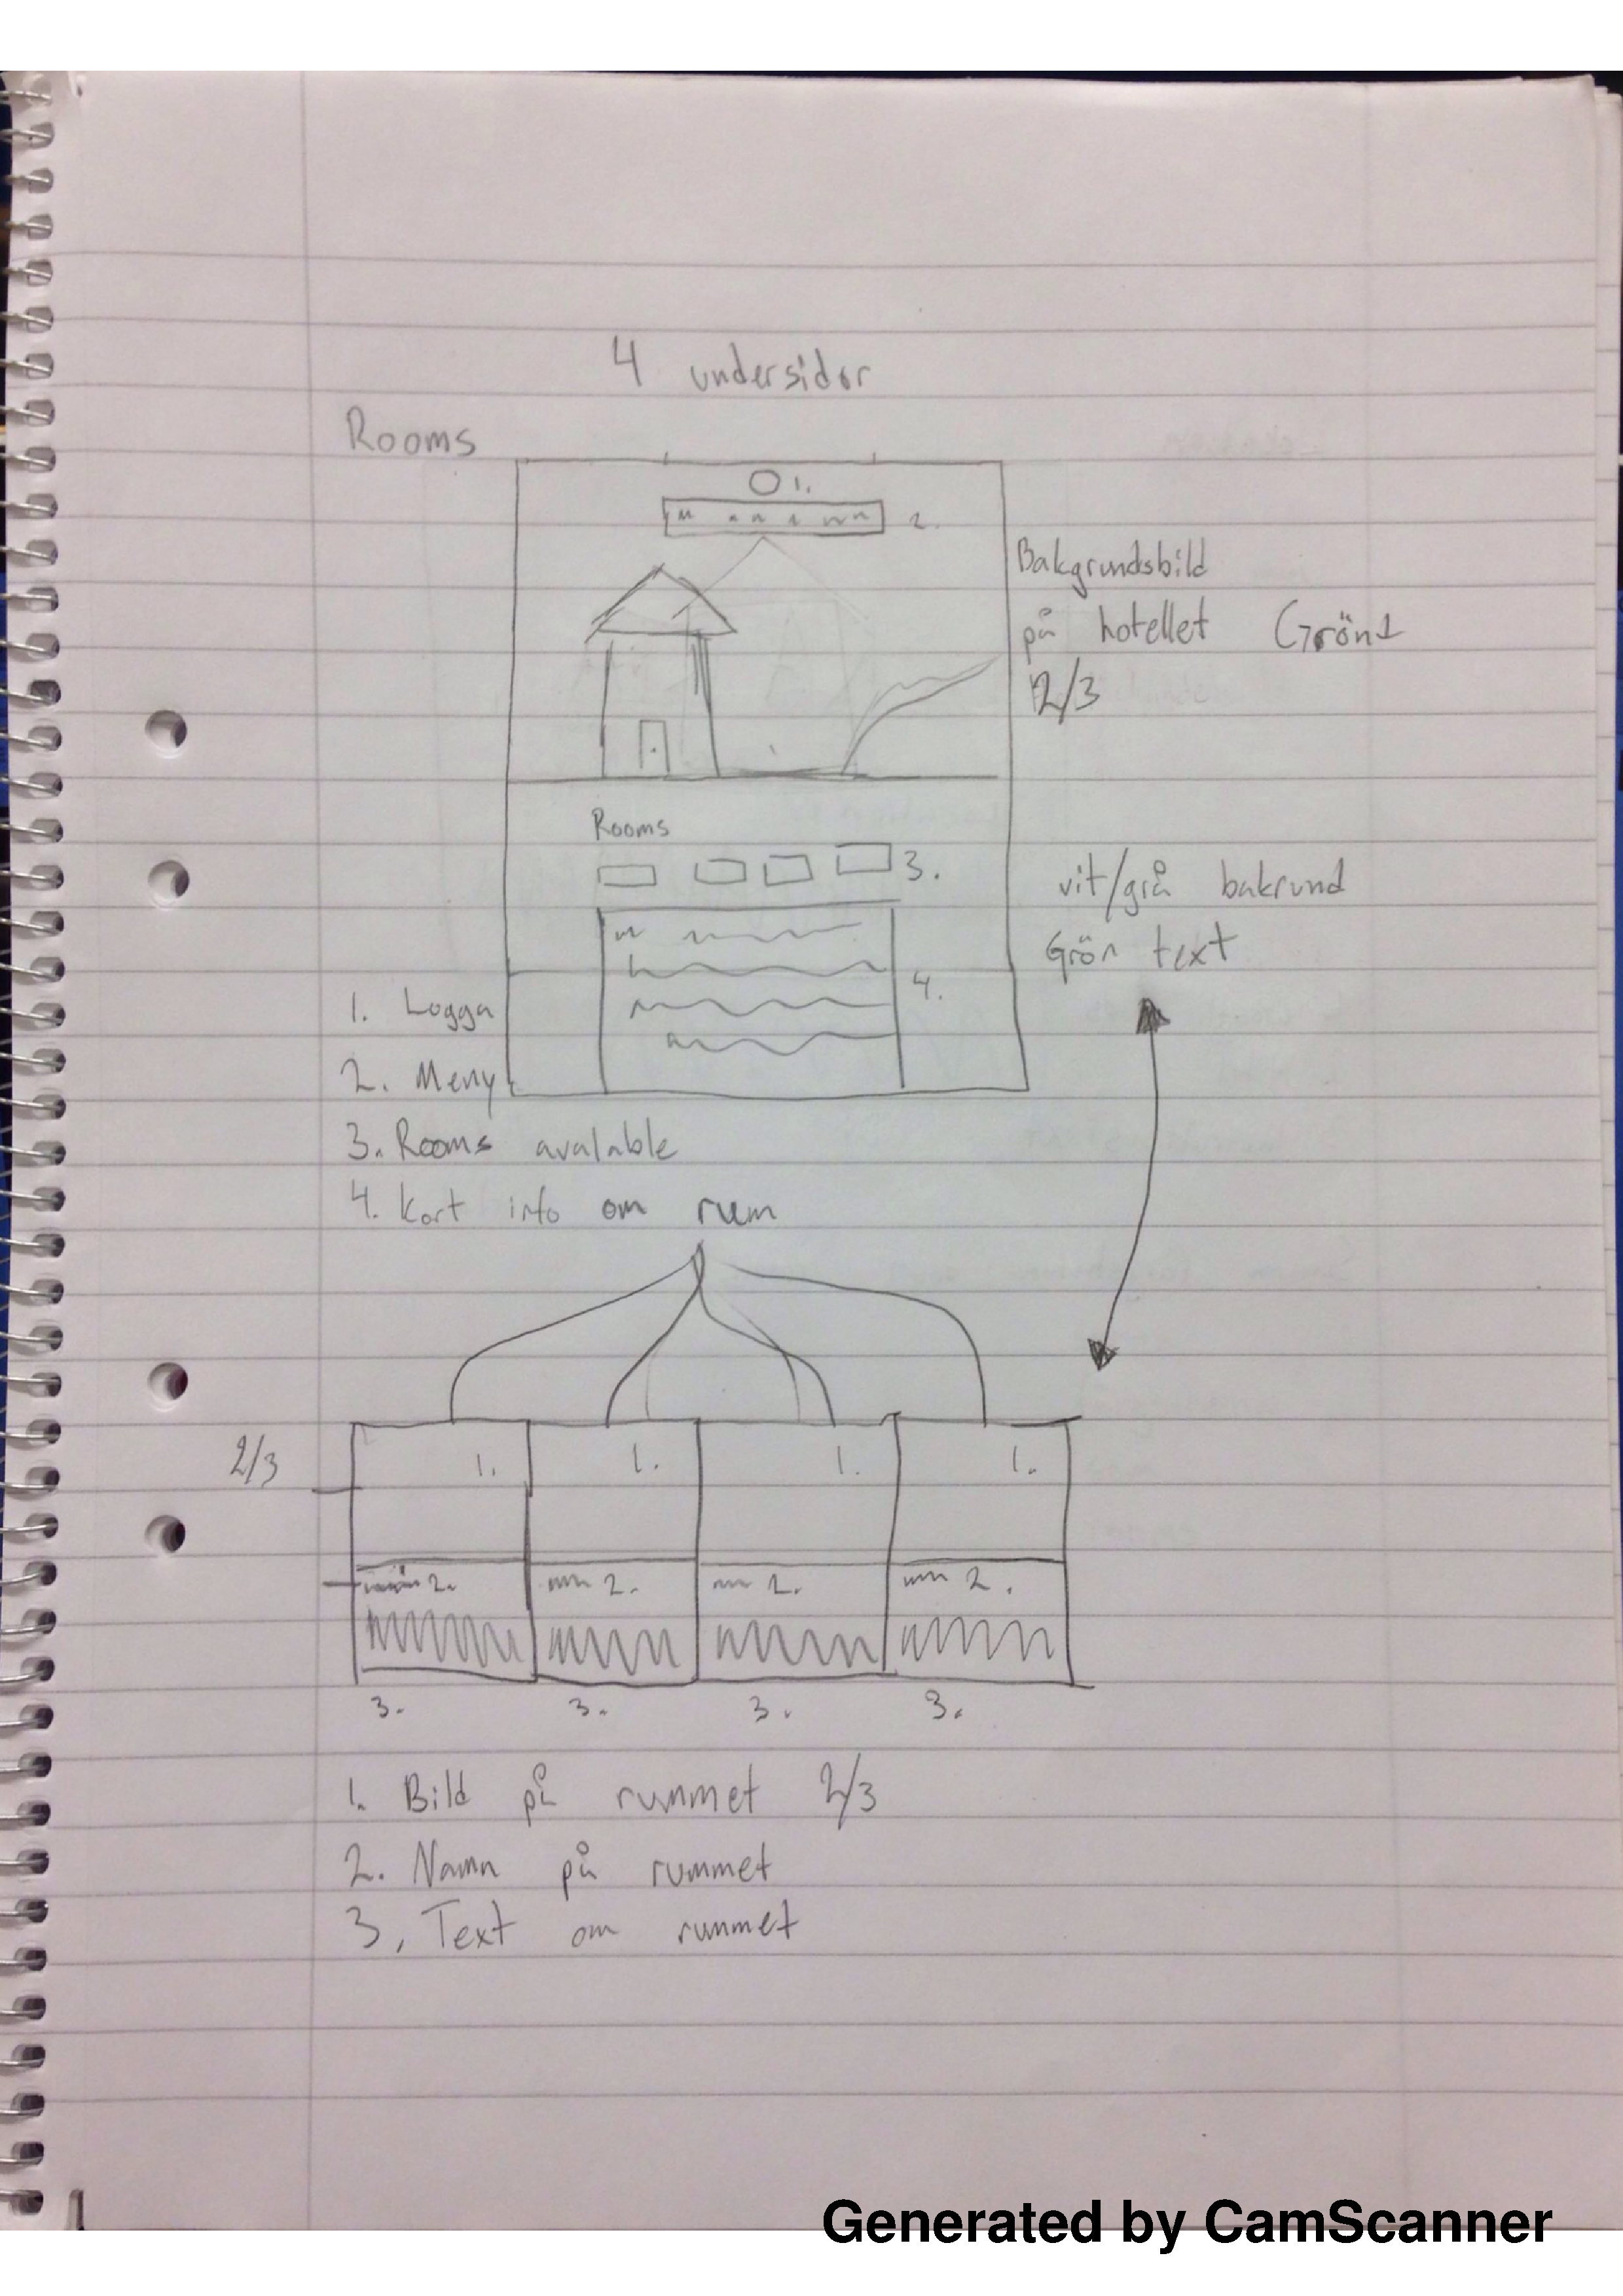 4 undersidor
Rooms
1.
2.
Bakgrundsbild
på hotellet Grönt
2/3
Rooms
3.
vit/grå bakrund
Grön text
4.
1. Logga
2. Meny
3. Rooms avalable
4. Kort info om rum
2/3
1. 1. 1. 1.
2. 2. 2. 2.
3. 3. 3. 3.
1. Bild på rummet 2/3
2. Namn på rummet
3, Text om rummet
Generated by CamScanner